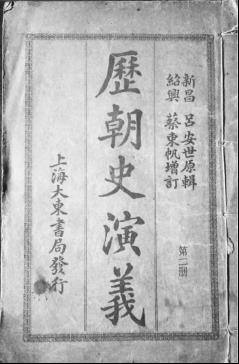 新昌 呂安世原輯
紹興 蔡東帆增訂
第二冊
歷朝史演義
上海大東書局發行